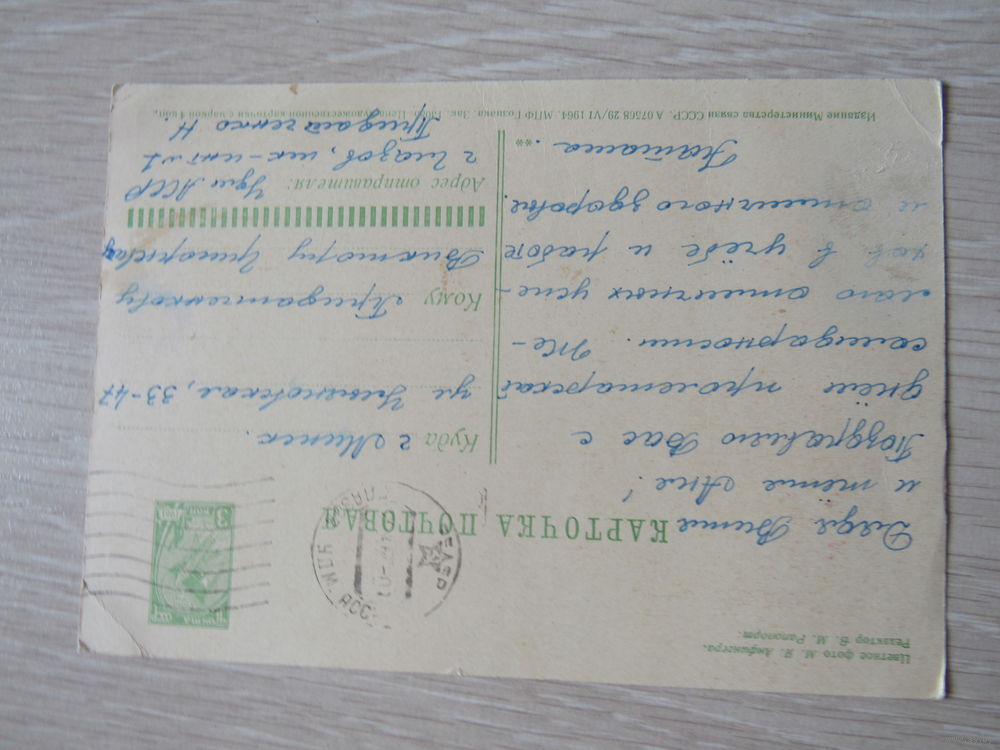 Цветное фото М. Я. Анфингера.
Редактор Б. М. Рапопорт.
КАРТОЧКА ПОЧТОВАЯ
ПОЧТА СССР
3 КОП
Дядя Витя
и тётя Аня!
Поздравляю Вас с
днём пролетарской
солидарности. Же-
лаю отличных успе-
хов в учёбе и работе
и отличного здоровье.
Наташа.
Куда г Минск
ул Ульяновская, 33-47
Кому Придатченкову
Виктору
Адрес отправителя: Удм АССР
г Глазов, шк-инт №1
Придатченко Н.
Издание Министерства связи СССР. А 07568 29/VI 1964. МПФ Гознака. Зак. Цена художественной карточки с маркой 4 коп.